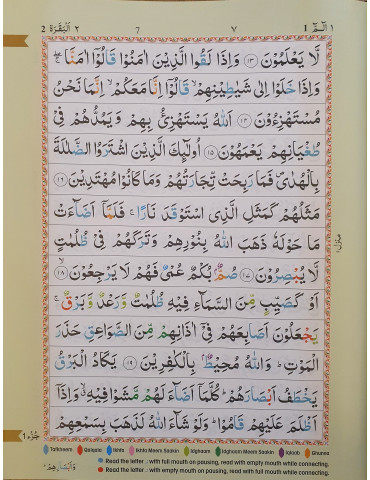 الٓمّٓ ١
٧
7
اَلْبَقَرَة ٢
لَّا يَعْلَمُوْنَ ١٣ وَاِذَا لَقُوا الَّذِيْنَ اٰمَنُوْا قَالُوْٓا اٰمَنَّا ۚۖ
وَاِذَا خَلَوْا اِلٰى شَيٰطِيْنِهِمْ ۙ قَالُوْٓا اِنَّا مَعَكُمْ ۙ اِنَّمَا نَحْنُ
مُسْتَهْزِءُوْنَ ١٤ اَللّٰهُ يَسْتَهْزِئُ بِهِمْ وَيَمُدُّهُمْ فِيْ
طُغْيَانِهِمْ يَعْمَهُوْنَ ١٥ اُولٰٓئِكَ الَّذِيْنَ اشْتَرَوُا الضَّلٰلَةَ
بِالْهُدٰى ۪ فَمَا رَبِحَتْ تِّجَارَتُهُمْ وَمَا كَانُوْا مُهْتَدِيْنَ ١٦
مَثَلُهُمْ كَمَثَلِ الَّذِى اسْتَوْقَدَ نَارًا ۚ فَلَمَّآ اَضَآءَتْ
مَا حَوْلَهٗ ذَهَبَ اللّٰهُ بِنُوْرِهِمْ وَتَرَكَهُمْ فِيْ ظُلُمٰتٍ
لَّا يُبْصِرُوْنَ ١٧ صُمٌّۢ بُكْمٌ عُمْيٌ فَهُمْ لَا يَرْجِعُوْنَ ١٨
اَوْ كَصَيِّبٍ مِّنَ السَّمَآءِ فِيْهِ ظُلُمٰتٌ وَّرَعْدٌ وَّبَرْقٌ ۚ
يَجْعَلُوْنَ اَصَابِعَهُمْ فِيْٓ اٰذَانِهِمْ مِّنَ الصَّوَاعِقِ حَذَرَ
الْمَوْتِ ؕ وَاللّٰهُ مُحِيْطٌۢ بِالْكٰفِرِيْنَ ١٩ يَكَادُ الْبَرْقُ
يَخْطَفُ اَبْصَارَهُمْ ؕ كُلَّمَآ اَضَآءَ لَهُمْ مَّشَوْا فِيْهِ ۙ وَاِذَآ
اَظْلَمَ عَلَيْهِمْ قَامُوْا ؕ وَلَوْ شَآءَ اللّٰهُ لَذَهَبَ بِسَمْعِهِمْ
مَنْزِل ١
جُزْء 1
وَاَبْصَارِهِمْ ؕ
Tafkheem Qalqala Ikhfa Ikhfa Meem Saakin Idghaam Idghaam Meem Saakin Iqlaab Ghunna
Read the letter ر with full mouth on pausing, read with empty mouth while connecting.
Read the letter ر with empty mouth on pausing, read with full mouth while connecting.